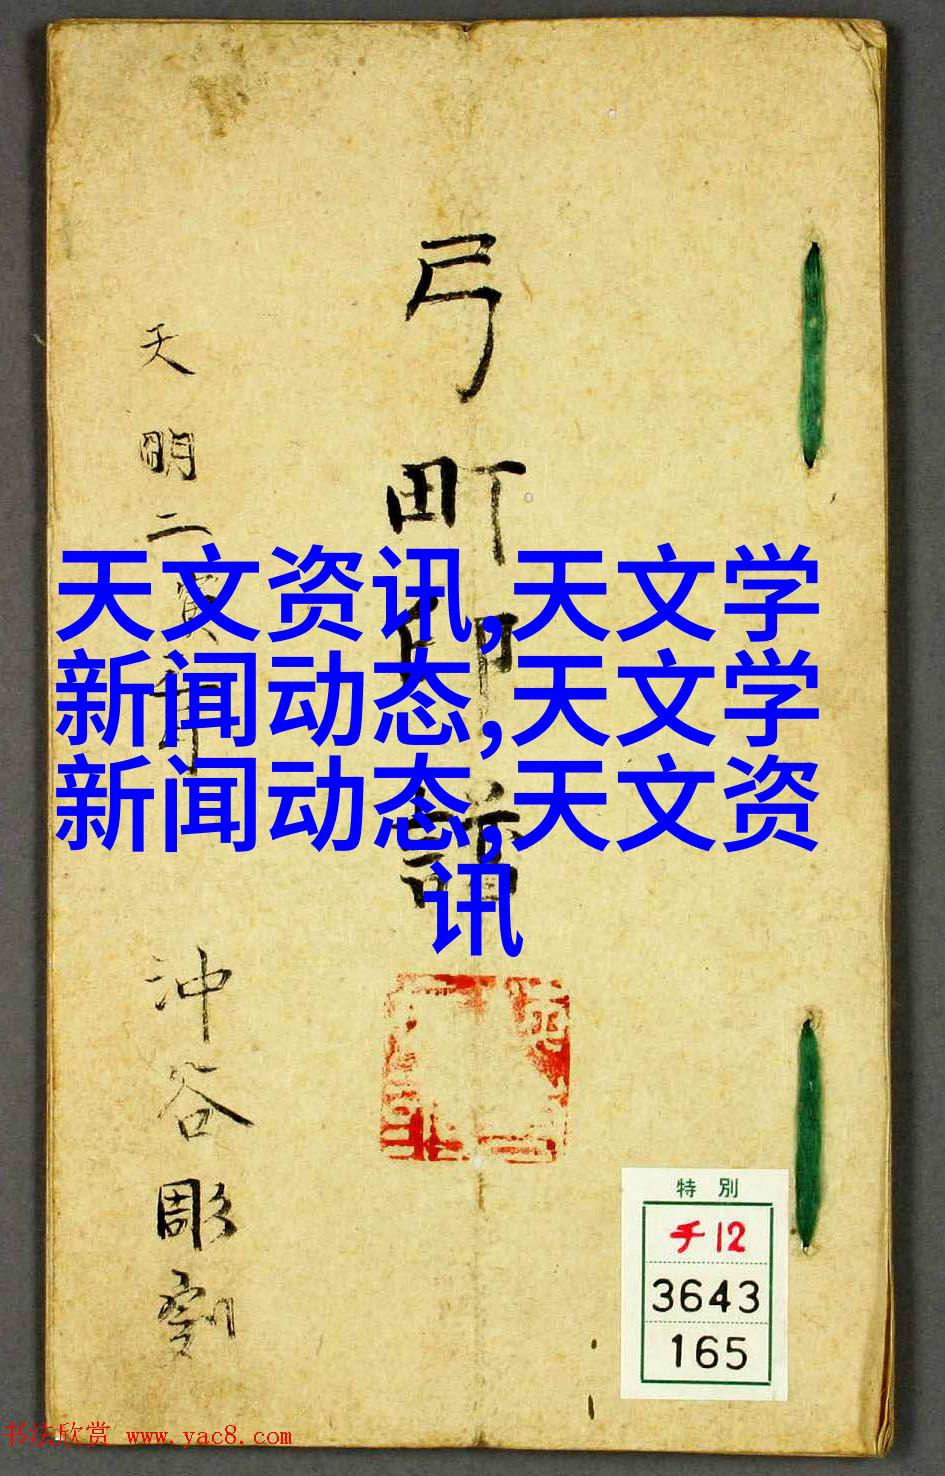 天文资讯,天文学
新闻动态,天文学
新闻动态,天文资
讯
弓町印譜
天明二寅年
沖谷彫刻
特別
チ12
3643
165
书法欣赏 www.yac8.com